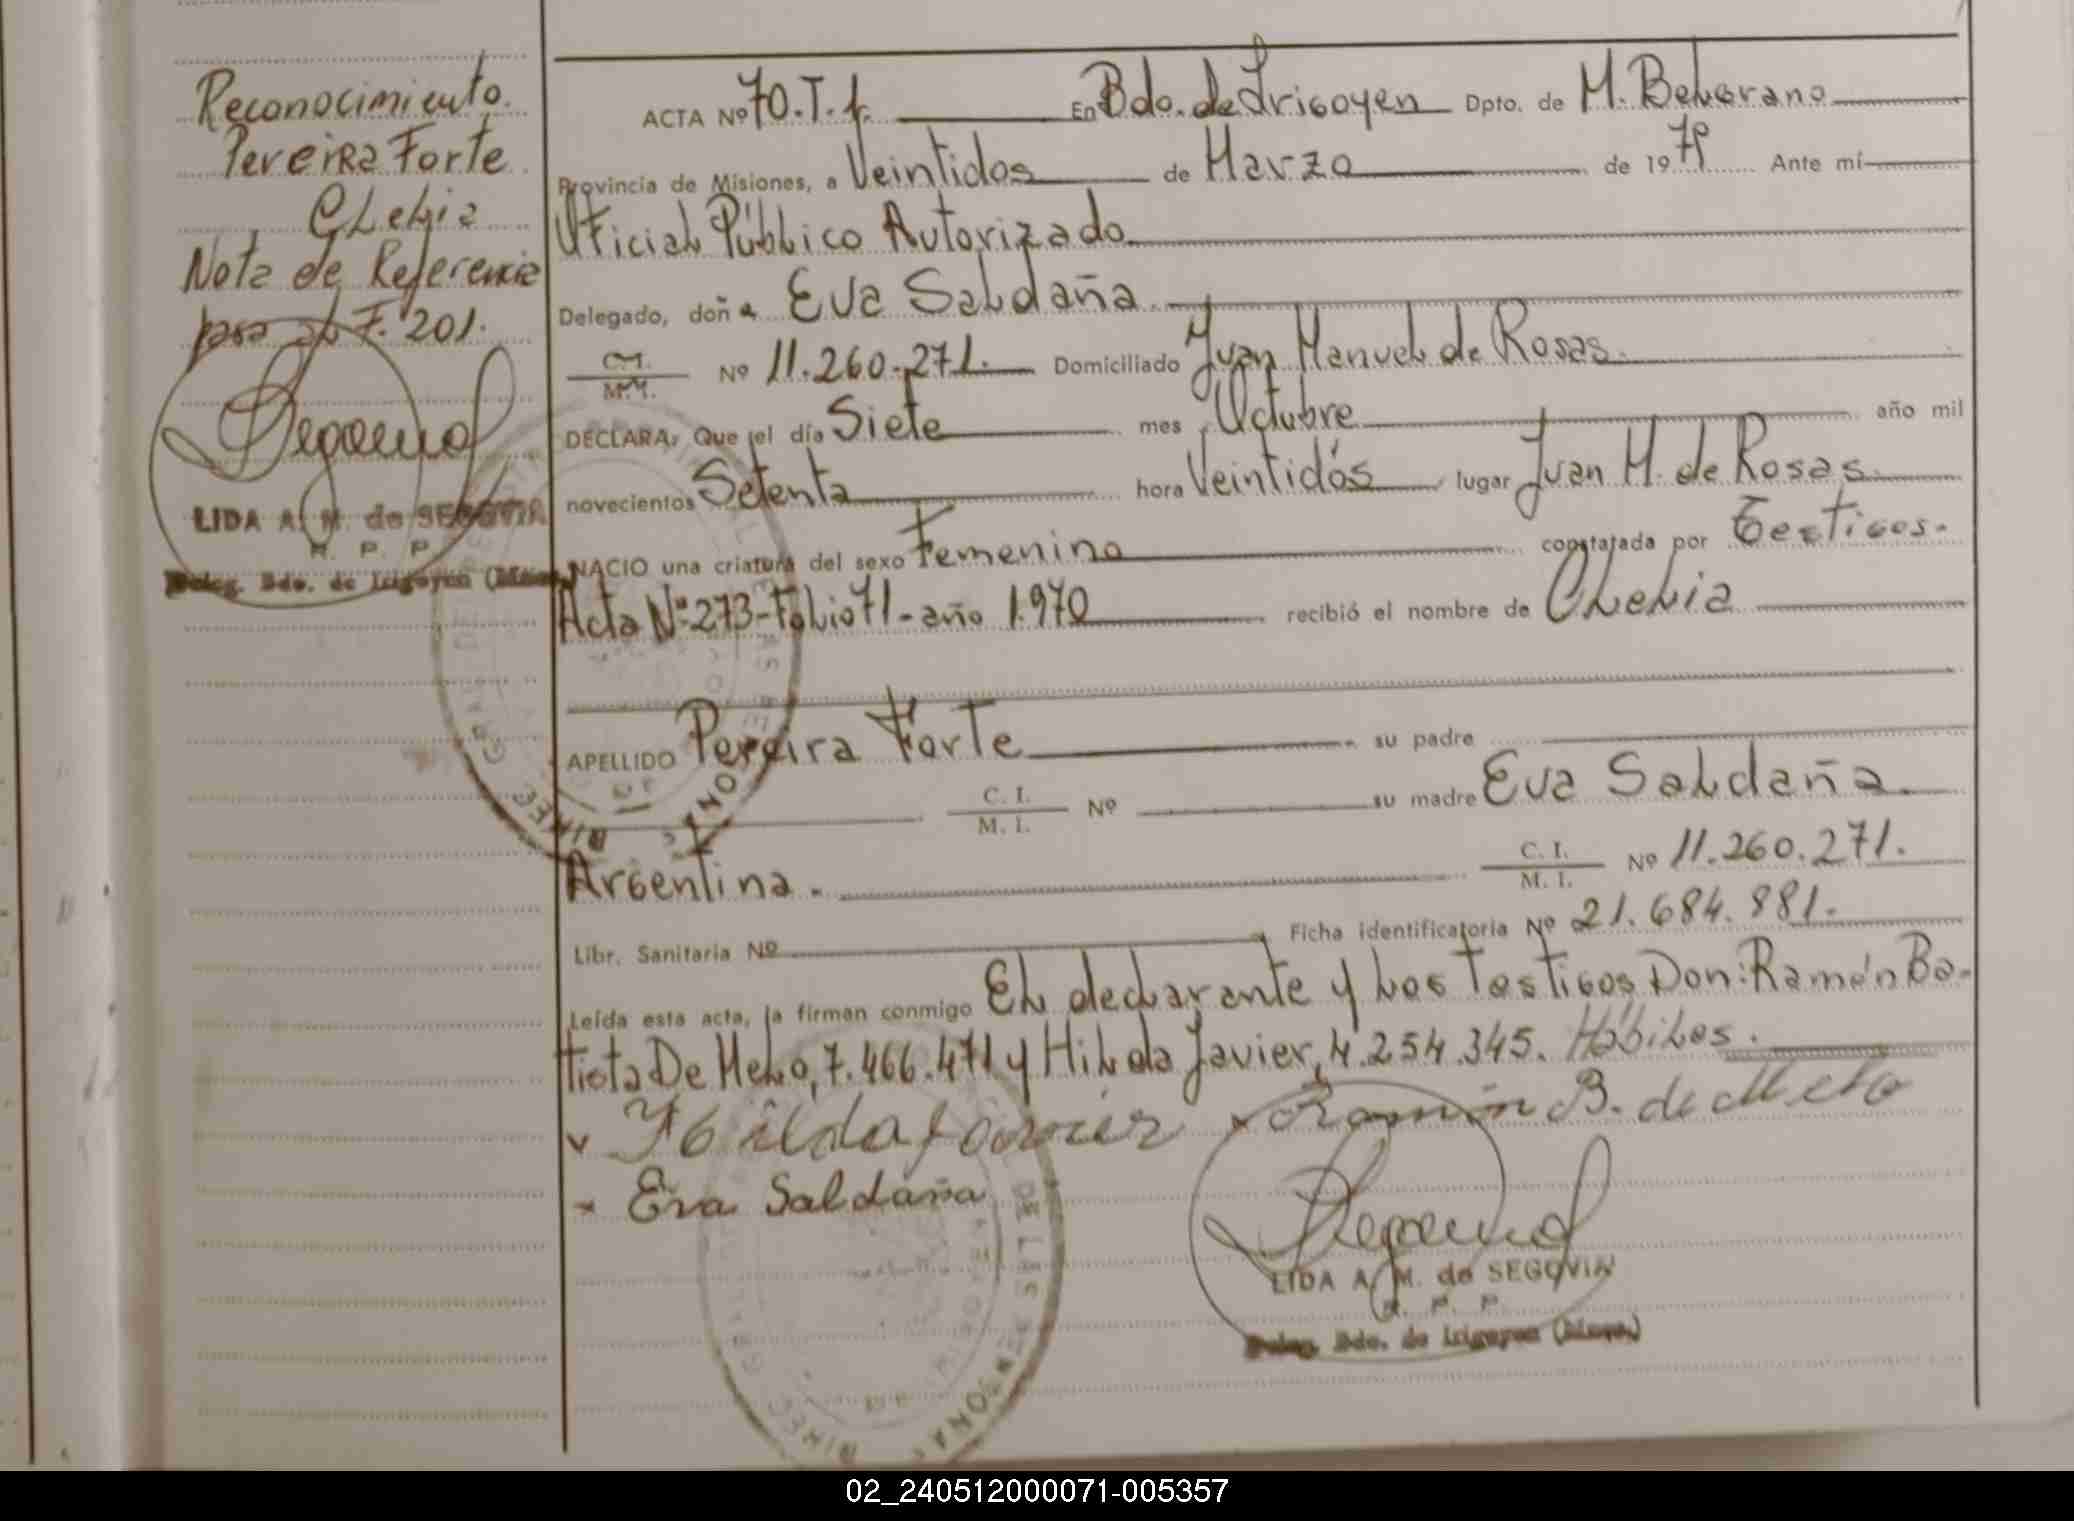 Reconocimiento.
Pereira Forte
Clelia
Nota de Referencia
pasa al F. 201.
LIDA A. M. de SEGOVIA
R. P. P.
Deleg. Bdo. de Irigoyen (Mnes.)
ACTA Nº 70. T. 1. En Bdo. de Irigoyen Dpto. de M. Belgrano
Provincia de Misiones, a Veintidos de Marzo de 1979 Ante mí
Oficial Público Autorizado
Delegado, doña Eva Saldaña
Nº 11.260.271. Domiciliado Juan Manuel de Rosas.
DECLARA: Que el día Siete mes Octubre año mil
novecientos Setenta hora Veintidós lugar Juan M. de Rosas.
NACIO una criatura del sexo Femenino constatada por Testigos.
Acta Nº 273-Folio 71-año 1.970 recibió el nombre de Clelia
APELLIDO Pereira Forte su padre
C. I.
M. I. Nº su madre Eva Saldaña.
Argentina. C. I.
M. I. Nº 11.260.271.
Libr. Sanitaria Nº Ficha identificatoria Nº 21.684.881.
Leída esta acta, la firman conmigo El declarante y los Testigos Don: Ramón Ba-
tista De Melo, 7.466.471 y Hilda Javier, 4.254.345. Hábiles.
Hilda Javier Ramón B. de Melo
Eva Saldaña
LIDA A. M. de SEGOVIA
R. P. P.
Deleg. Bdo. de Irigoyen (Mnes.)
02_240512000071-005357